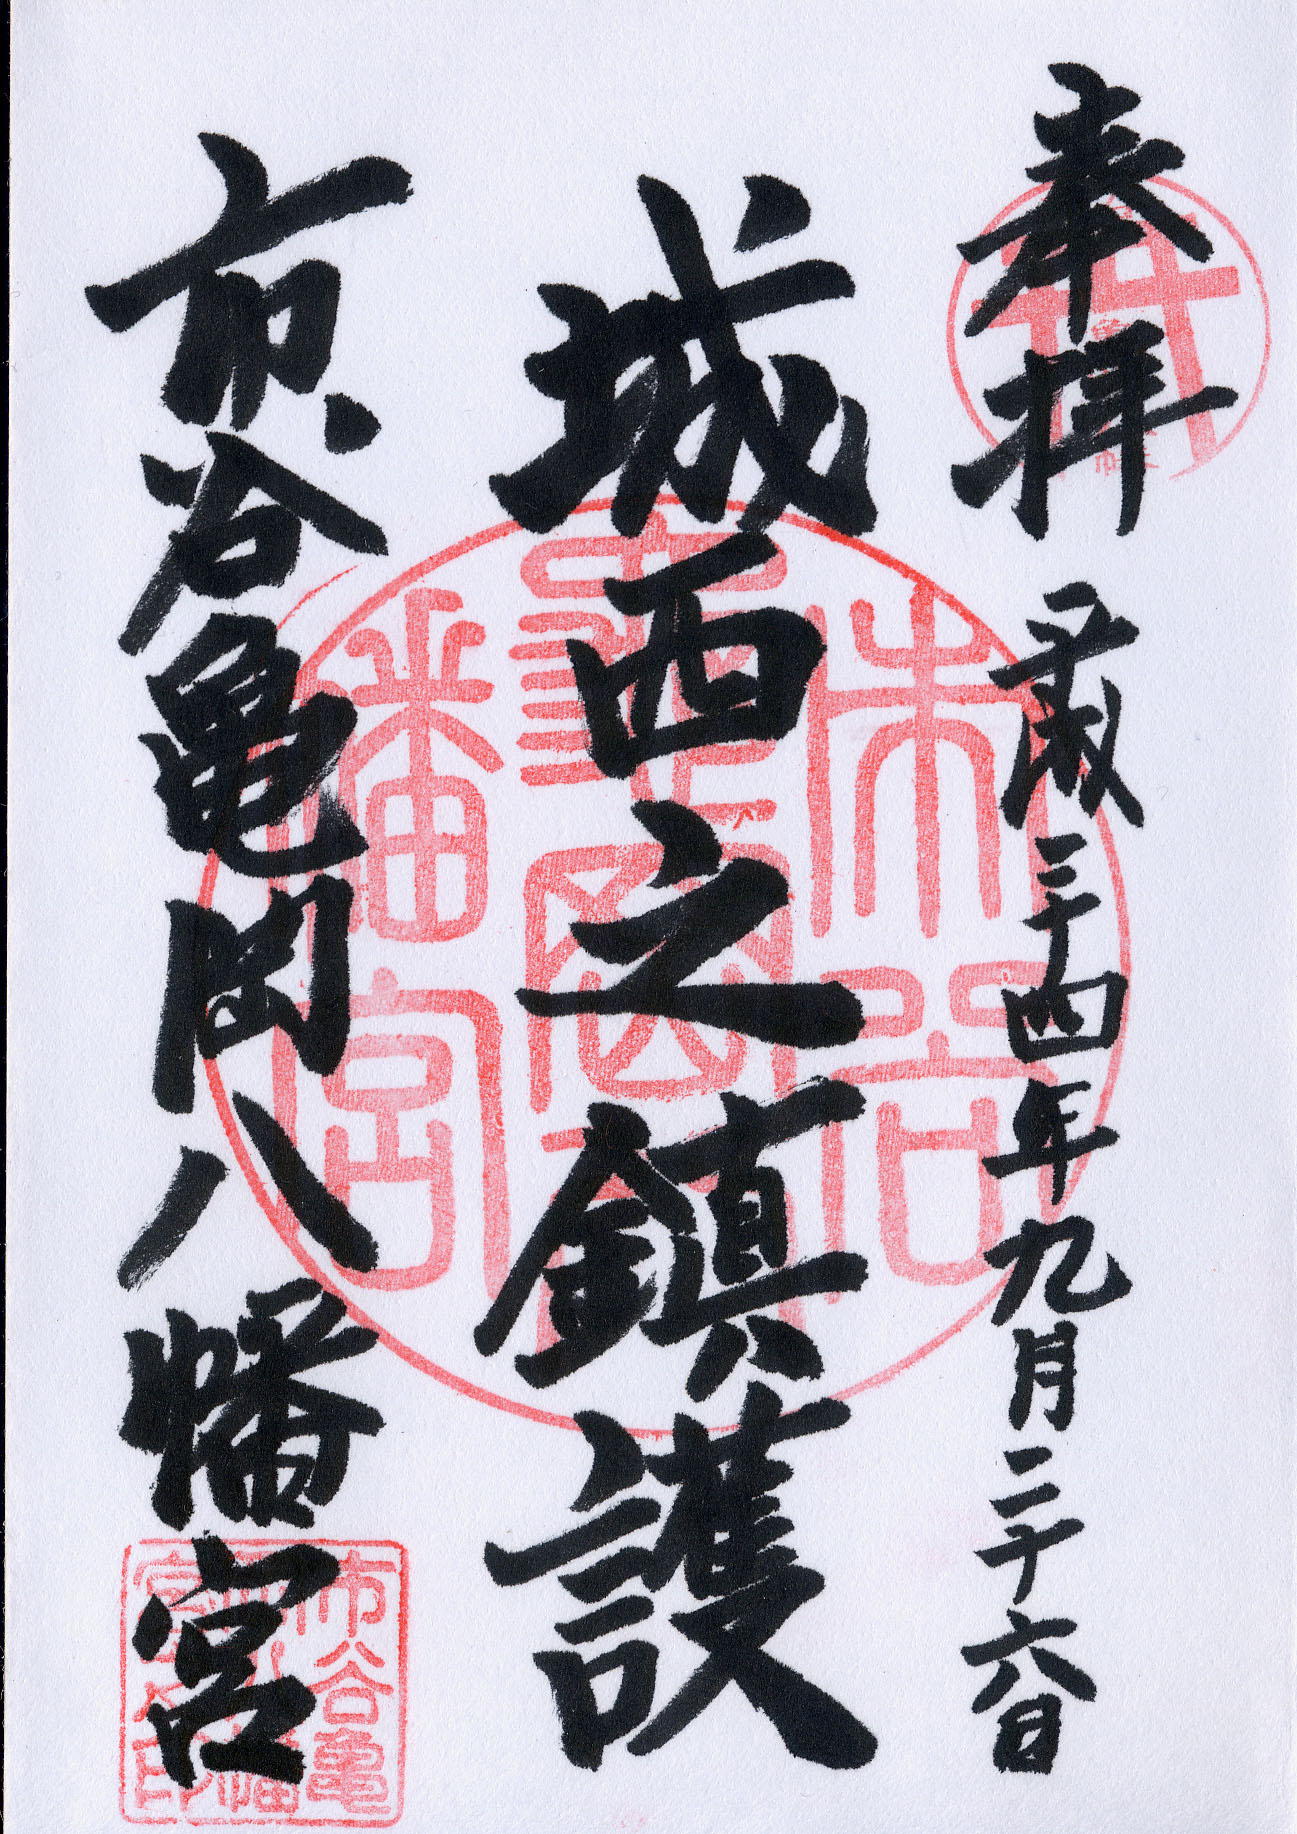 奉拝 平成二十四年九月二十六日
城西之鎮護
市谷亀岡八幡宮
市谷
亀岡八
幡宮
市谷亀
岡八幡
宮之印